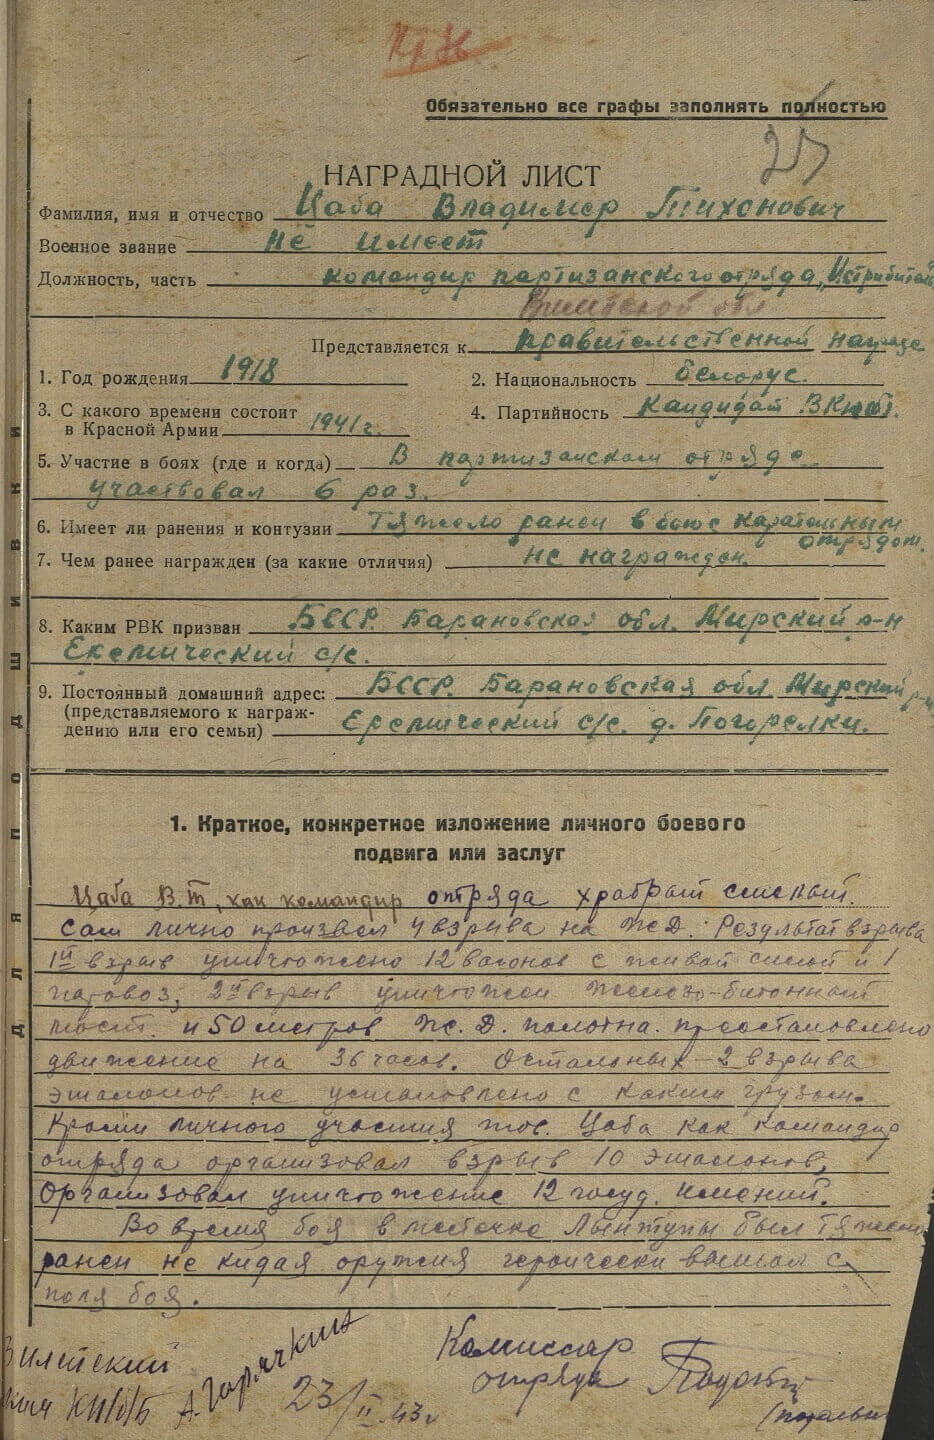 Обязательно все графы заполнять полностью
25
НАГРАДНОЙ ЛИСТ
Фамилия, имя и отчество Цаба Владимир Тихонович
Военное звание не имеет
Должность, часть командир партизанского отряда „Истребитель
Вилейской обл
Представляется к правительственной награде
1. Год рождения 1918 2. Национальность белорус.
3. С какого времени состоит
в Красной Армии 1941 г. 4. Партийность Кандидат ВКП(б).
5. Участие в боях (где и когда) В партизанском отряде
участвовал 6 раз.
6. Имеет ли ранения и контузии Тяжело ранен в бою с карательным
отрядом.
7. Чем ранее награжден (за какие отличия) не награжден.
8. Каким РВК призван БССР. Барановская обл. Мирский р-н
Еремический с/с.
9. Постоянный домашний адрес: БССР. Барановская обл. Мирский р-н
(представляемого к награж-
дению или его семьи) Еремический с/с. д. Погорелки.
для подшивки
1. Краткое, конкретное изложение личного боевого
подвига или заслуг
Цаба В.Т, как командир отряда храбрый смелый.
Сам лично произвел 4 взрыва на ЖД. Результат взрыва
1й взрыв уничтожено 12 вагонов с живой силой и 1
паровоз, 2й взрыв уничтожен железо-битонный
мост. и 50 метров Ж.Д. полотна. преостановлено
движение на 36 часов. Остальных 2 взрыва
эшалонов не установлено с каким грузом.
Кроми личного участия тов. Цаба как командир
отряда организовал взрыв 10 эшалонов,
Организовал уничтожение 12 госуд. имений.
Во время боя в местечке Лынтупы был тяжело
ранен не кидая оружия героически вышел с
поля боя.
Вилейский
А. Горячкин
23/II.43 г
Комиссар
отряда